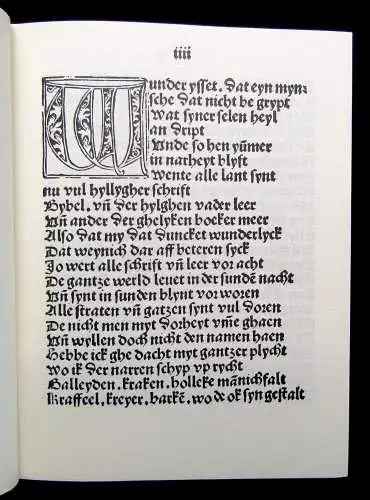 iiii
Wunder ysset. dat eyn myn⸗
sche dat nicht be grypt
Wat syner selen heyl
an dript
Unde so hen ym̃er
in narheyt blyft
Wente alle lant synt
nu vul hyllygher schrift
Bybel. vñ der hylghen vader leer
Vñ ander der ghelyken boeker meer
Also dat my dat duncket wunderlyck
Dat weynich dar aff beteren syck
Jo wert alle schrift vñ leer vor acht
De gantze werld leuet in der sunden nacht
Vñ synt in sunden blynt vor woren
Alle straten vñ gatzen synt vul doren
De nicht men myt dorheyt vm̃e ghaen
Vñ wyllen doch nicht den namen haen
Hebbe ick ghe dacht myt gantzer plycht
Wo ik der narren schyp vp rycht
Galleyden. kraken. hollcke mãnichfalt
Kraffeel. kreyer. barkẽ. wo de ok syn gestalt